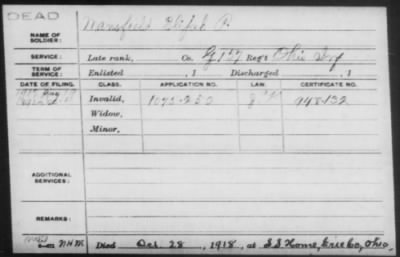 DEAD
NAME OF SOLDIER: Mansfield Elijah P.
SERVICE: Late rank, Co. G 157 Reg't Ohio Inf
TERM OF SERVICE: Enlisted , 1 Discharged , 1
DATE OF FILING. CLASS. APPLICATION NO. LAW. CERTIFICATE NO.
Invalid, 948.132
Widow,
Minor,
ADDITIONAL SERVICES:
REMARKS:
Died Oct. 28, 1918, at S.S. Home, Erie Co, Ohio.